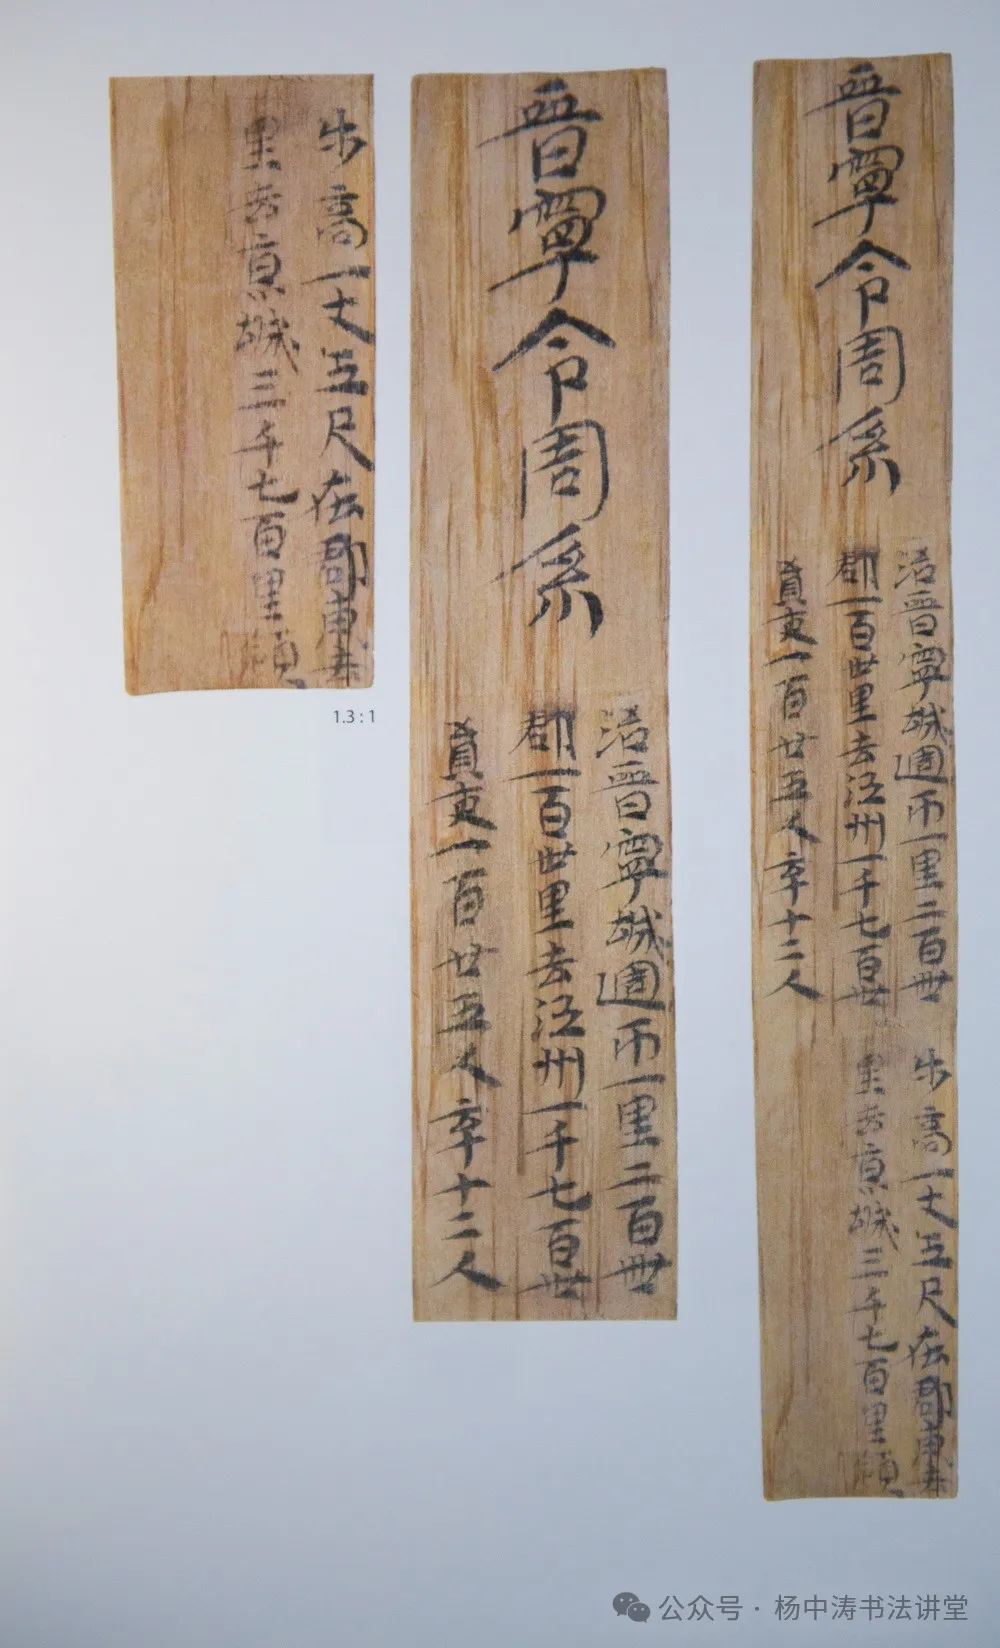 晉寧令周系
治晉寧城週帀一里二百卌步高一丈五尺在郡東去
郡一百卅里去江州一千七百卅里去京城三千七百里領
員吏一百廿五人卒十二人
晉寧令周系
治晉寧城週帀一里二百卌
郡一百卅里去江州一千七百卅
員吏一百廿五人卒十二人
步高一丈五尺在郡東去
里去京城三千七百里領
1.3 : 1
公众号 · 杨中涛书法讲堂